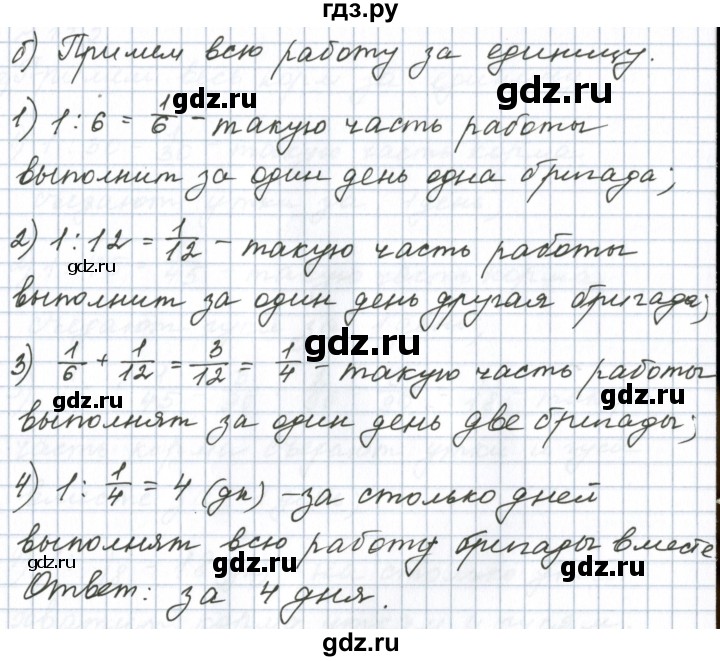 гдз.ру
б) Примем всю работу за единицу.
gdz.ru gdz.ru
1) 1 : 6 = 1/6 - такую часть работы
выполнит за один день одна бригада;
2) 1 : 12 = 1/12 - такую часть работы
gdz.ru
выполнит за один день другая бригада;
gdz.ru
3) 1/6 + 1/12 = 3/12 = 1/4 - такую часть работы
gdz.ru
выполнят за один день две бригады;
4) 1 : 1/4 = 4 (дн) - за столько дней
выполнят всю работу бригады вместе
gdz.ru gdz.ru
Ответ: за 4 дня.
gdz.ru